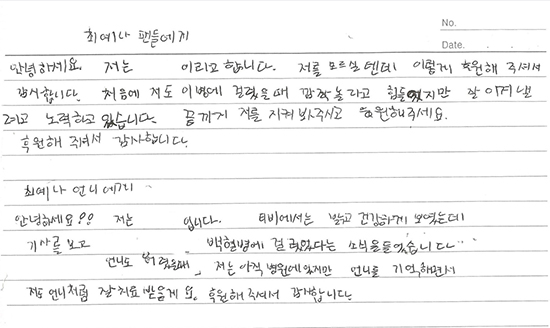 No.
최예나 팬들에게
Date.
안녕하세요. 저는 이라고 합니다. 저를 모르실텐데 이렇게 후원해 주셔서
감사합니다. 처음에 저도 이 병에 걸렸을때 깜짝 놀라고 힘들었지만 잘 이겨낼
려고 노력하고 있습니다. 끝까지 저를 지켜봐주시고 응원해주세요.
후원해 주셔서 감사합니다.
최예나 언니에게
안녕하세요?? 저는 입니다. 티비에서는 밝고 건강하게 보였는데
기사를 보고 백혈병에 걸렸었다는 소식을 들었습니다
언니도 어렸을때, 저는 아직 병원에 있지만 언니를 기억하면서
저도 언니처럼 잘 치료 받을게요. 후원해 주셔서 감사합니다